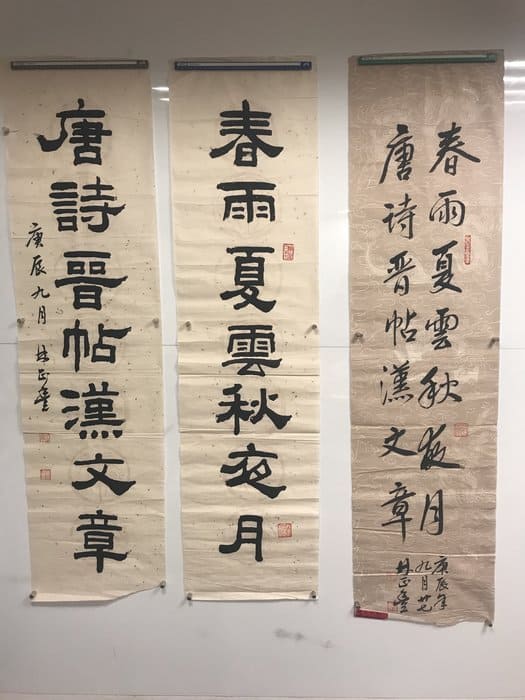 春雨夏雲秋夜月
唐詩晉帖漢文章
庚辰九月 林正豐
春雨夏雲秋夜月
唐诗晋帖漢文章
庚辰年
九月廿七
林正豐